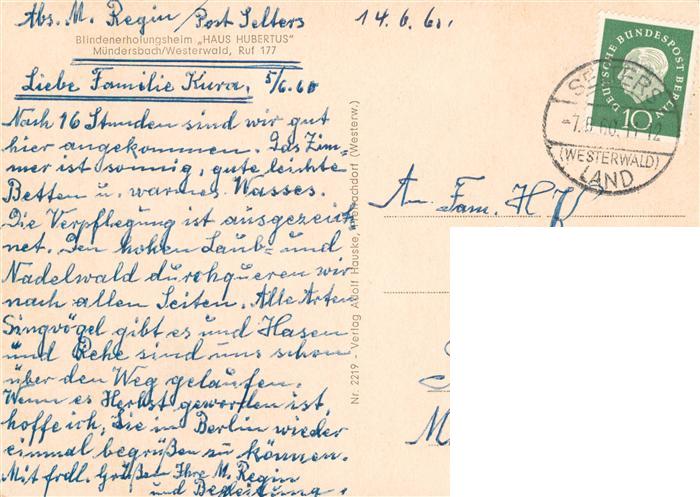 Abs. M. Regin / Post Selters
14.6.60.
Blindenerholungsheim „HAUS HUBERTUS"
Mündersbach/Westerwald, Ruf 177
Liebe Familie Kura, 5/6.60
Nach 16 Stunden sind wir gut
hier angekommen. Das Zim-
mer ist sonnig, gute leichte
Betten u. warmes Wasses.
Die Verpflegung ist ausgezeich
net. Den hohen Laub- und
Nadelwald durchqueren wir
nach allen Seiten. Alle Arten
Singvögel gibt es und Hasen
und Rehe sind uns schon
über den Weg gelaufen.
Wenn es Herbst geworden ist,
hoffe ich, Sie in Berlin wieder
einmal begrüßen zu können.
Mit frdl. Grüßen Ihre M. Regin
und Begleitung.
Nr. 2219 - Verlag Adolf Hauske, (Westerw.)
DEUTSCHE BUNDESPOST BERLIN
10
SELTERS
-7.6.60.11-12
(WESTERWALD)
LAND
An Fam. H. K
M